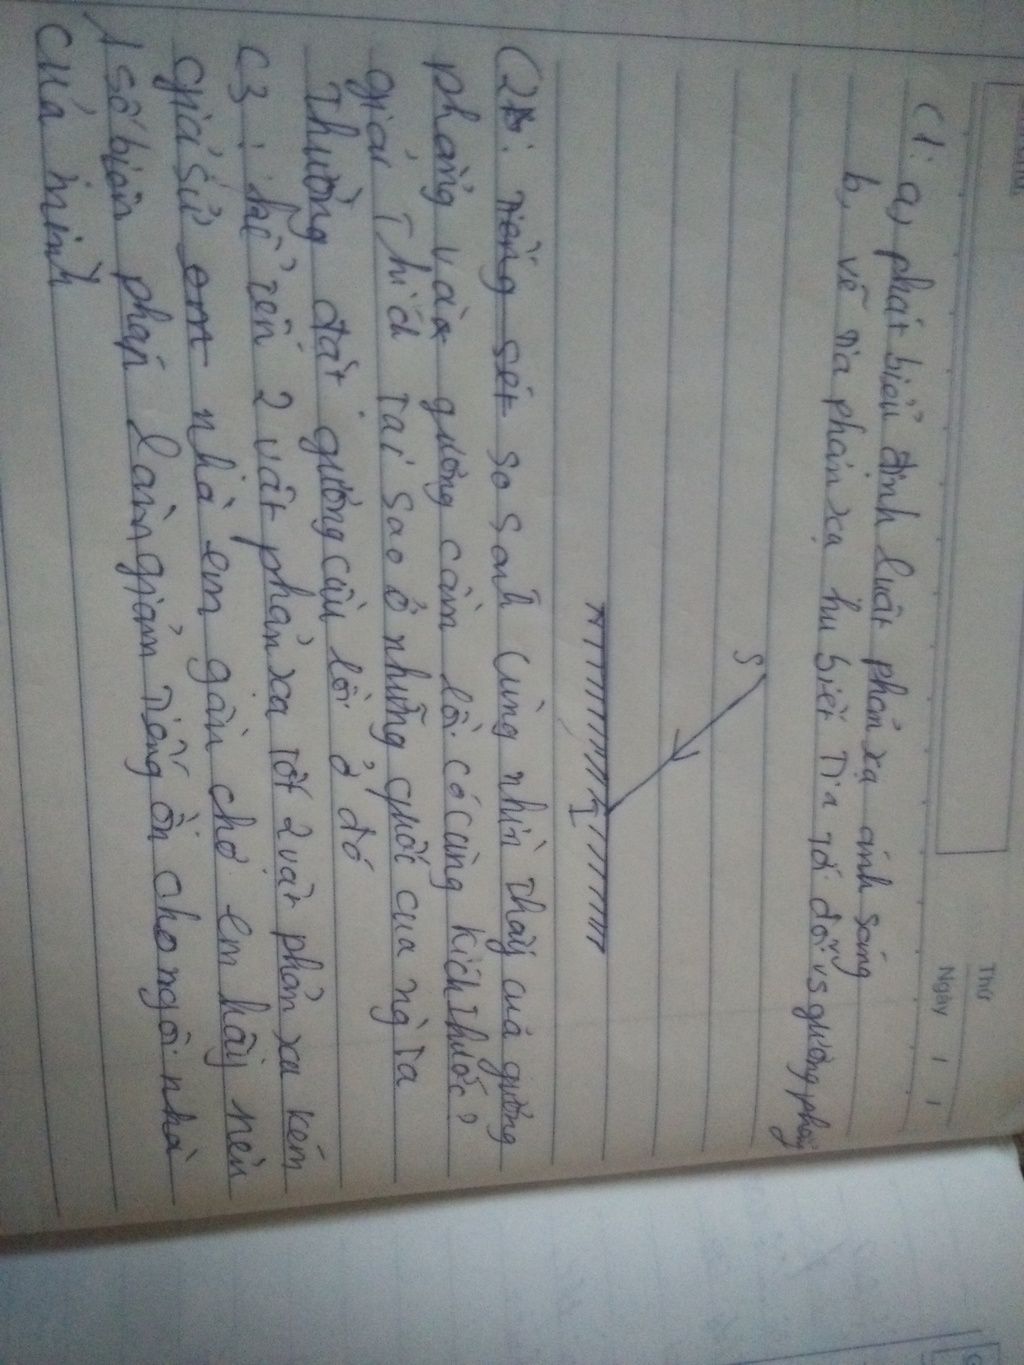 Thứ
Ngày / /
C1: a, phát biểu định luật phản xạ ánh sáng
b, vẽ tia phản xạ hu biết tia tới đối vs gương phẳg
S
I
C2: Tiếng sét so sanh cùng nhìn thấy cuả gương
phẳng và gương cầm lồi có cùng kích thước?
giải Thích tại sao ở những quốc cua ng ta
Thường đặt gương cầu lồi ở đó
C3: kể tên 2 vật phản xạ tốt 2 vật phản xạ kém
giả sử em nhà em gần chợ em hãy nêu
1 số biện pháp làm giảm tiếng ồn cho ngôi nhà
của mình